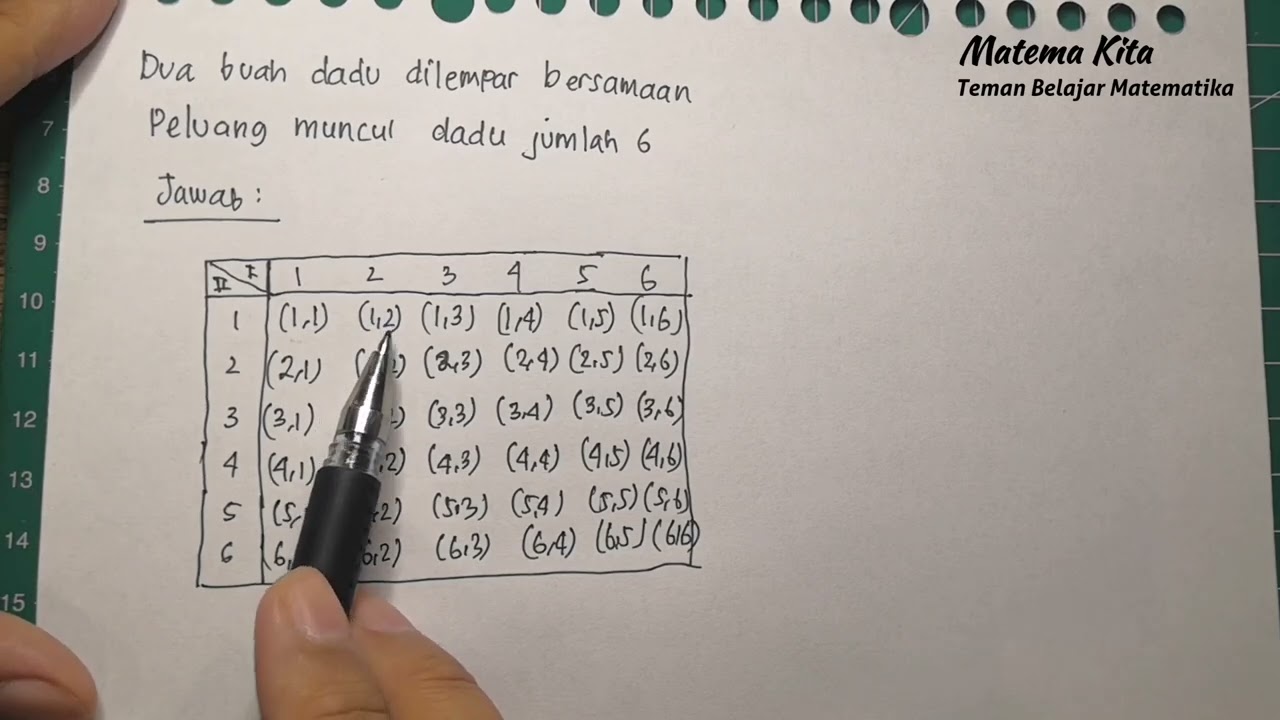 Matema Kita
Teman Belajar Matematika
Dua buah dadu dilempar bersamaan
Peluang muncul dadu jumlah 6
Jawab :
II I 1 2 3 4 5 6
1 (1,1) (1,2) (1,3) (1,4) (1,5) (1,6)
2 (2,1) (2,3) (2,4) (2,5) (2,6)
3 (3,1) (3,3) (3,4) (3,5) (3,6)
4 (4,1) ,2) (4,3) (4,4) (4,5) (4,6)
5 (5, ,2) (5,3) (5,4) (5,5) (5,6)
6 (6, 6,2) (6,3) (6,4) (6,5) (6,6)
7
8
9
10
11
12
13
14
15